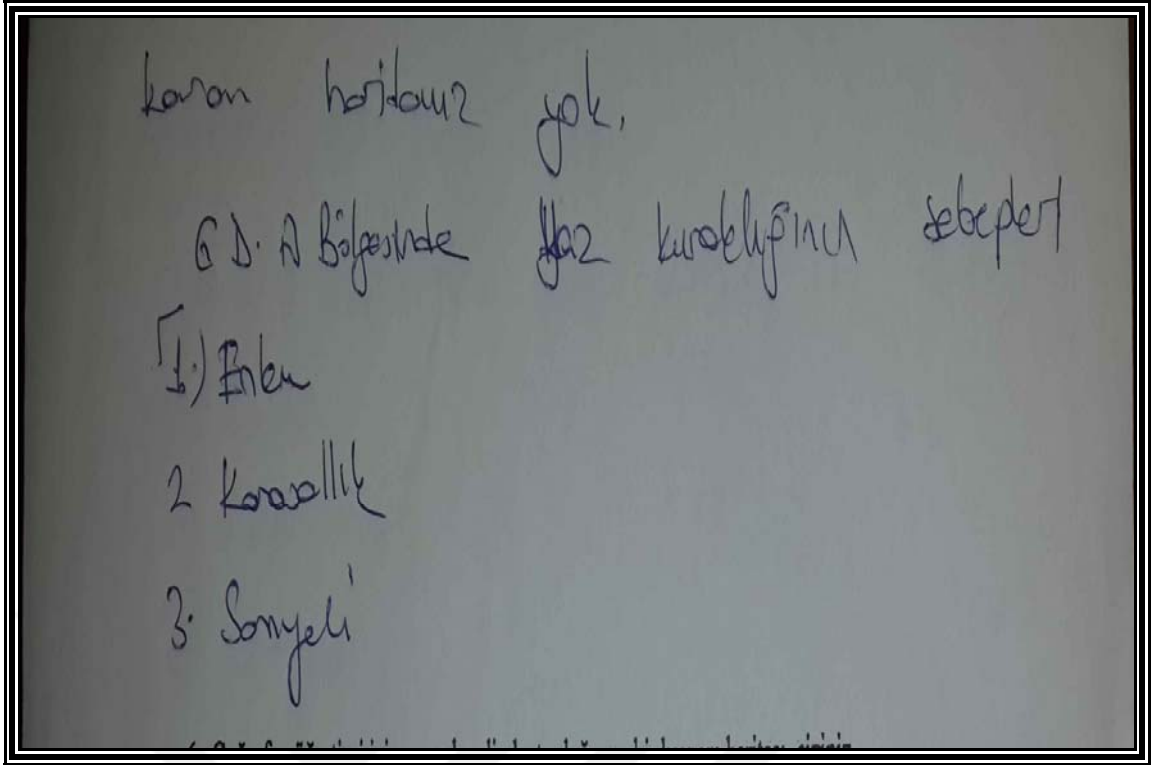 haritamız yok.
G D. A Bölgesinde Yaz kuraklığının sebepleri
1.) Enlem
2 Karasallık
3. Samyeli